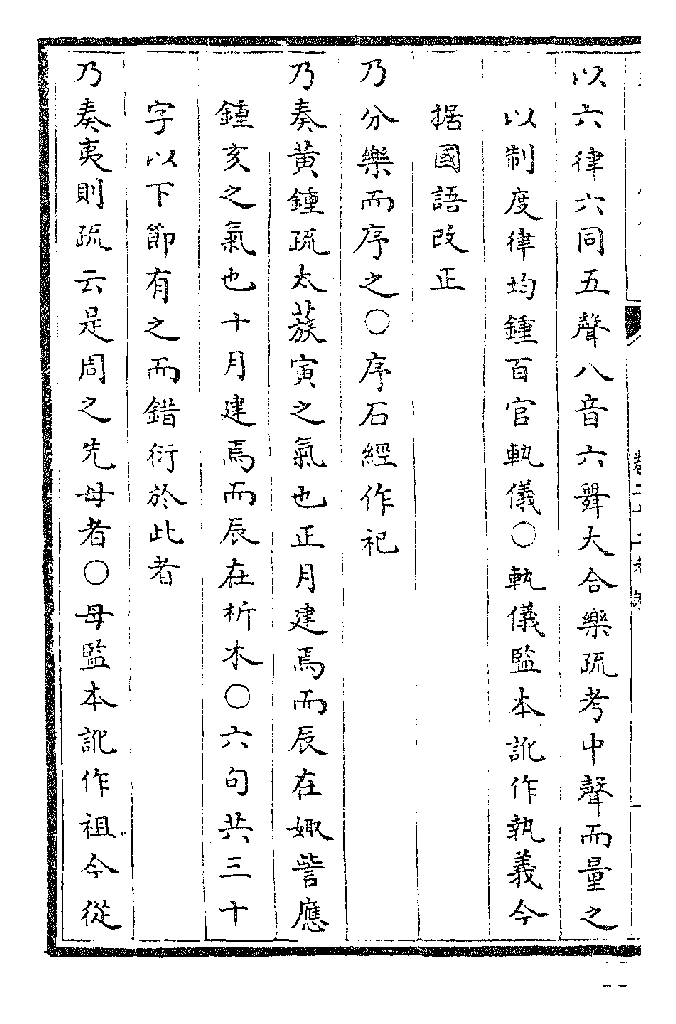 以六律六同五聲八音六舞大合樂疏考中聲而量之
以制度律均鍾百官軌儀〇軌儀監本訛作執義今
据國語改正
乃分樂而序之〇序石經作祀
乃奏黃鍾疏太蔟寅之氣也正月建焉而辰在娵訾應
鍾亥之氣也十月建焉而辰在析木〇六句共三十
字以下節有之而錯衍於此者
乃奏夷則疏云是周之先母者〇母監本訛作祖今從